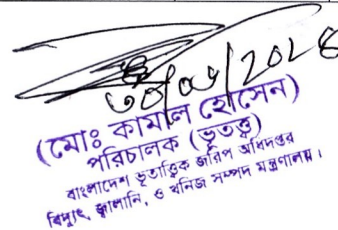 ৩০/০৬/202৪
(মোঃ কামাল হোসেন)
পরিচালক (ভূতত্ত্ব)
বাংলাদেশ ভূতাত্ত্বিক জরিপ অধিদপ্তর
বিদ্যুৎ, জ্বালানি, ও খনিজ সম্পদ মন্ত্রণালয়।